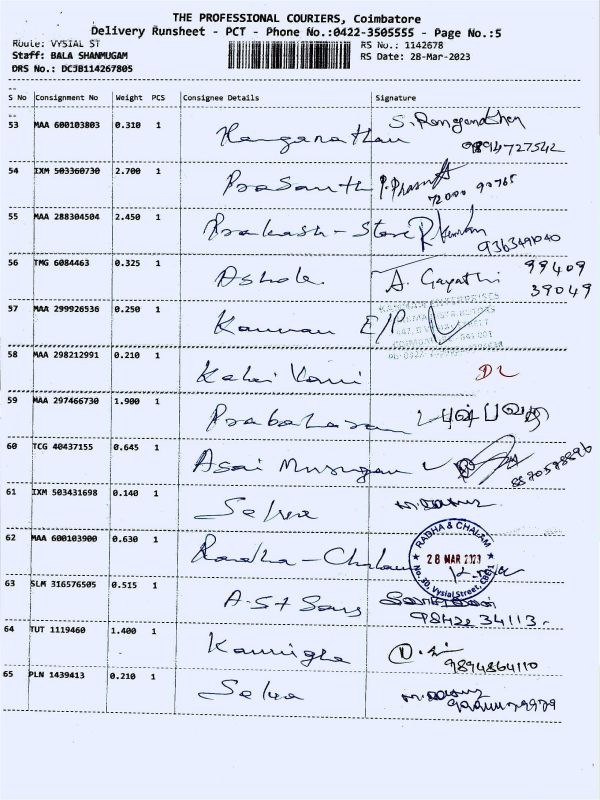 THE PROFESSIONAL COURIERS, Coimbatore
Delivery Runsheet - PCT - Phone No.:0422-3505555 - Page No.:5
Route: VYSIAL ST RS No.: 1142678
Staff: BALA SHANMUGAM RS Date: 28-Mar-2023
DRS No.: DCJB114267805
S No Consignment No Weight PCS Consignee Details Signature
53 MAA 600103803 0.310 1 Ranganathan S. Ranganathan
9894727542
54 IXM 503360730 2.700 1 Prasanth P. Prasanth
55 MAA 288304504 2.450 1 Prakash - Store
9363491040
56 TMG 6084463 0.325 1 Ashok A. Gayathri 99409
39049
57 MAA 299926536 0.250 1 Kannan E/P
58 MAA 298212991 0.210 1 Kalai Vani DL
59 MAA 297466730 1.900 1 Prabakaran
60 TCG 40437155 0.645 1 Asai Murugan
61 IXM 503431698 0.140 1 Selva
62 MAA 600103900 0.630 1 Radha - Chalam
RADHA & CHALAM
28 MAR 2023
No. 30, Vysial Street, CBE-1
63 SLM 316576505 0.515 1 A.S.T Sons
98422 34113
64 TUT 1119460 1.400 1 Kannigha
9894864110
65 PLN 1439413 0.210 1 Selva